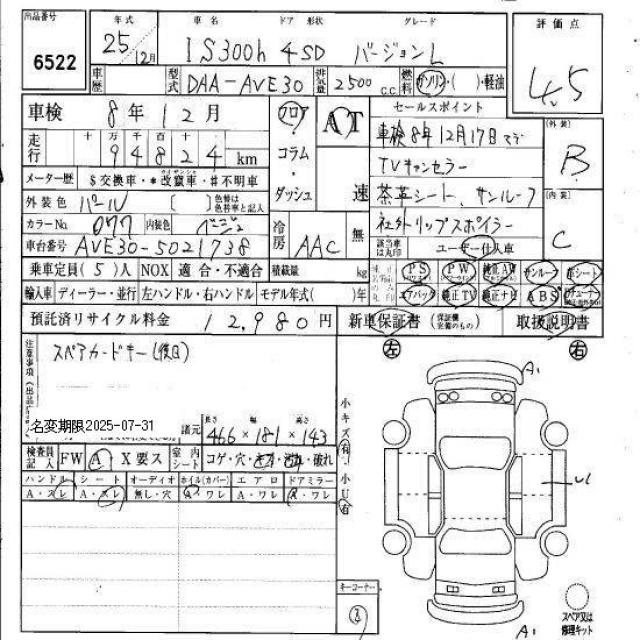 出品番号 6522
年式 25/12月
車名 IS300h
ドア 形状 4SD
グレード バージョンL
評価点 4.5
車歴
型式 DAA-AVE30
排気量 2500 c.c.
燃料 ガソリン・( )・軽油
車検 8年12月
フロア・コラム・ダッシュ
AT 速
セールスポイント
走行 十 万 千 百 十
94824 km
車検8年12月17日まで
TVキャンセラー
茶革シート、サンルーフ
社外リップスポイラー
該当車は丸印 ユーザー仕入車
外装 B
内装 C
メーター歴 $交換車・*改竄車・#不明車
外装色 パール [ ] 色替は色替車と記入
カラーNo. 077 内装色 ベージュ
車台番号 AVE30-5021738
冷房 AAC 無
乗車定員(5)人 NOX 適合・不適合 積載量 kg
PS PW 純正AW サンルーフ 革シート
輸入車 ディーラー・並行 左ハンドル・右ハンドル モデル年式( )年
エアバック 純正TV 純正ナビ ABS
預託済リサイクル料金 12,980円
新車保証書 (保証機 完備のもの) 取扱説明書
注意事項(出品
スペアカードキー(後日)
名変期限2025-07-31
諸元 長さ 幅 高さ
466×181×143
検査員記入 FW A X要ス 室内シート コゲ・穴・ ・破れ
ハンドル シート オーディオ ホイル(カバー) エアロ ドアミラー
A・スレ A・スレ 無し・穴 A・ワレ A・ワレ A・ワレ
左 右
小キズ有・小U有
A1
A1
キーコーナー
スペア又は修理キット